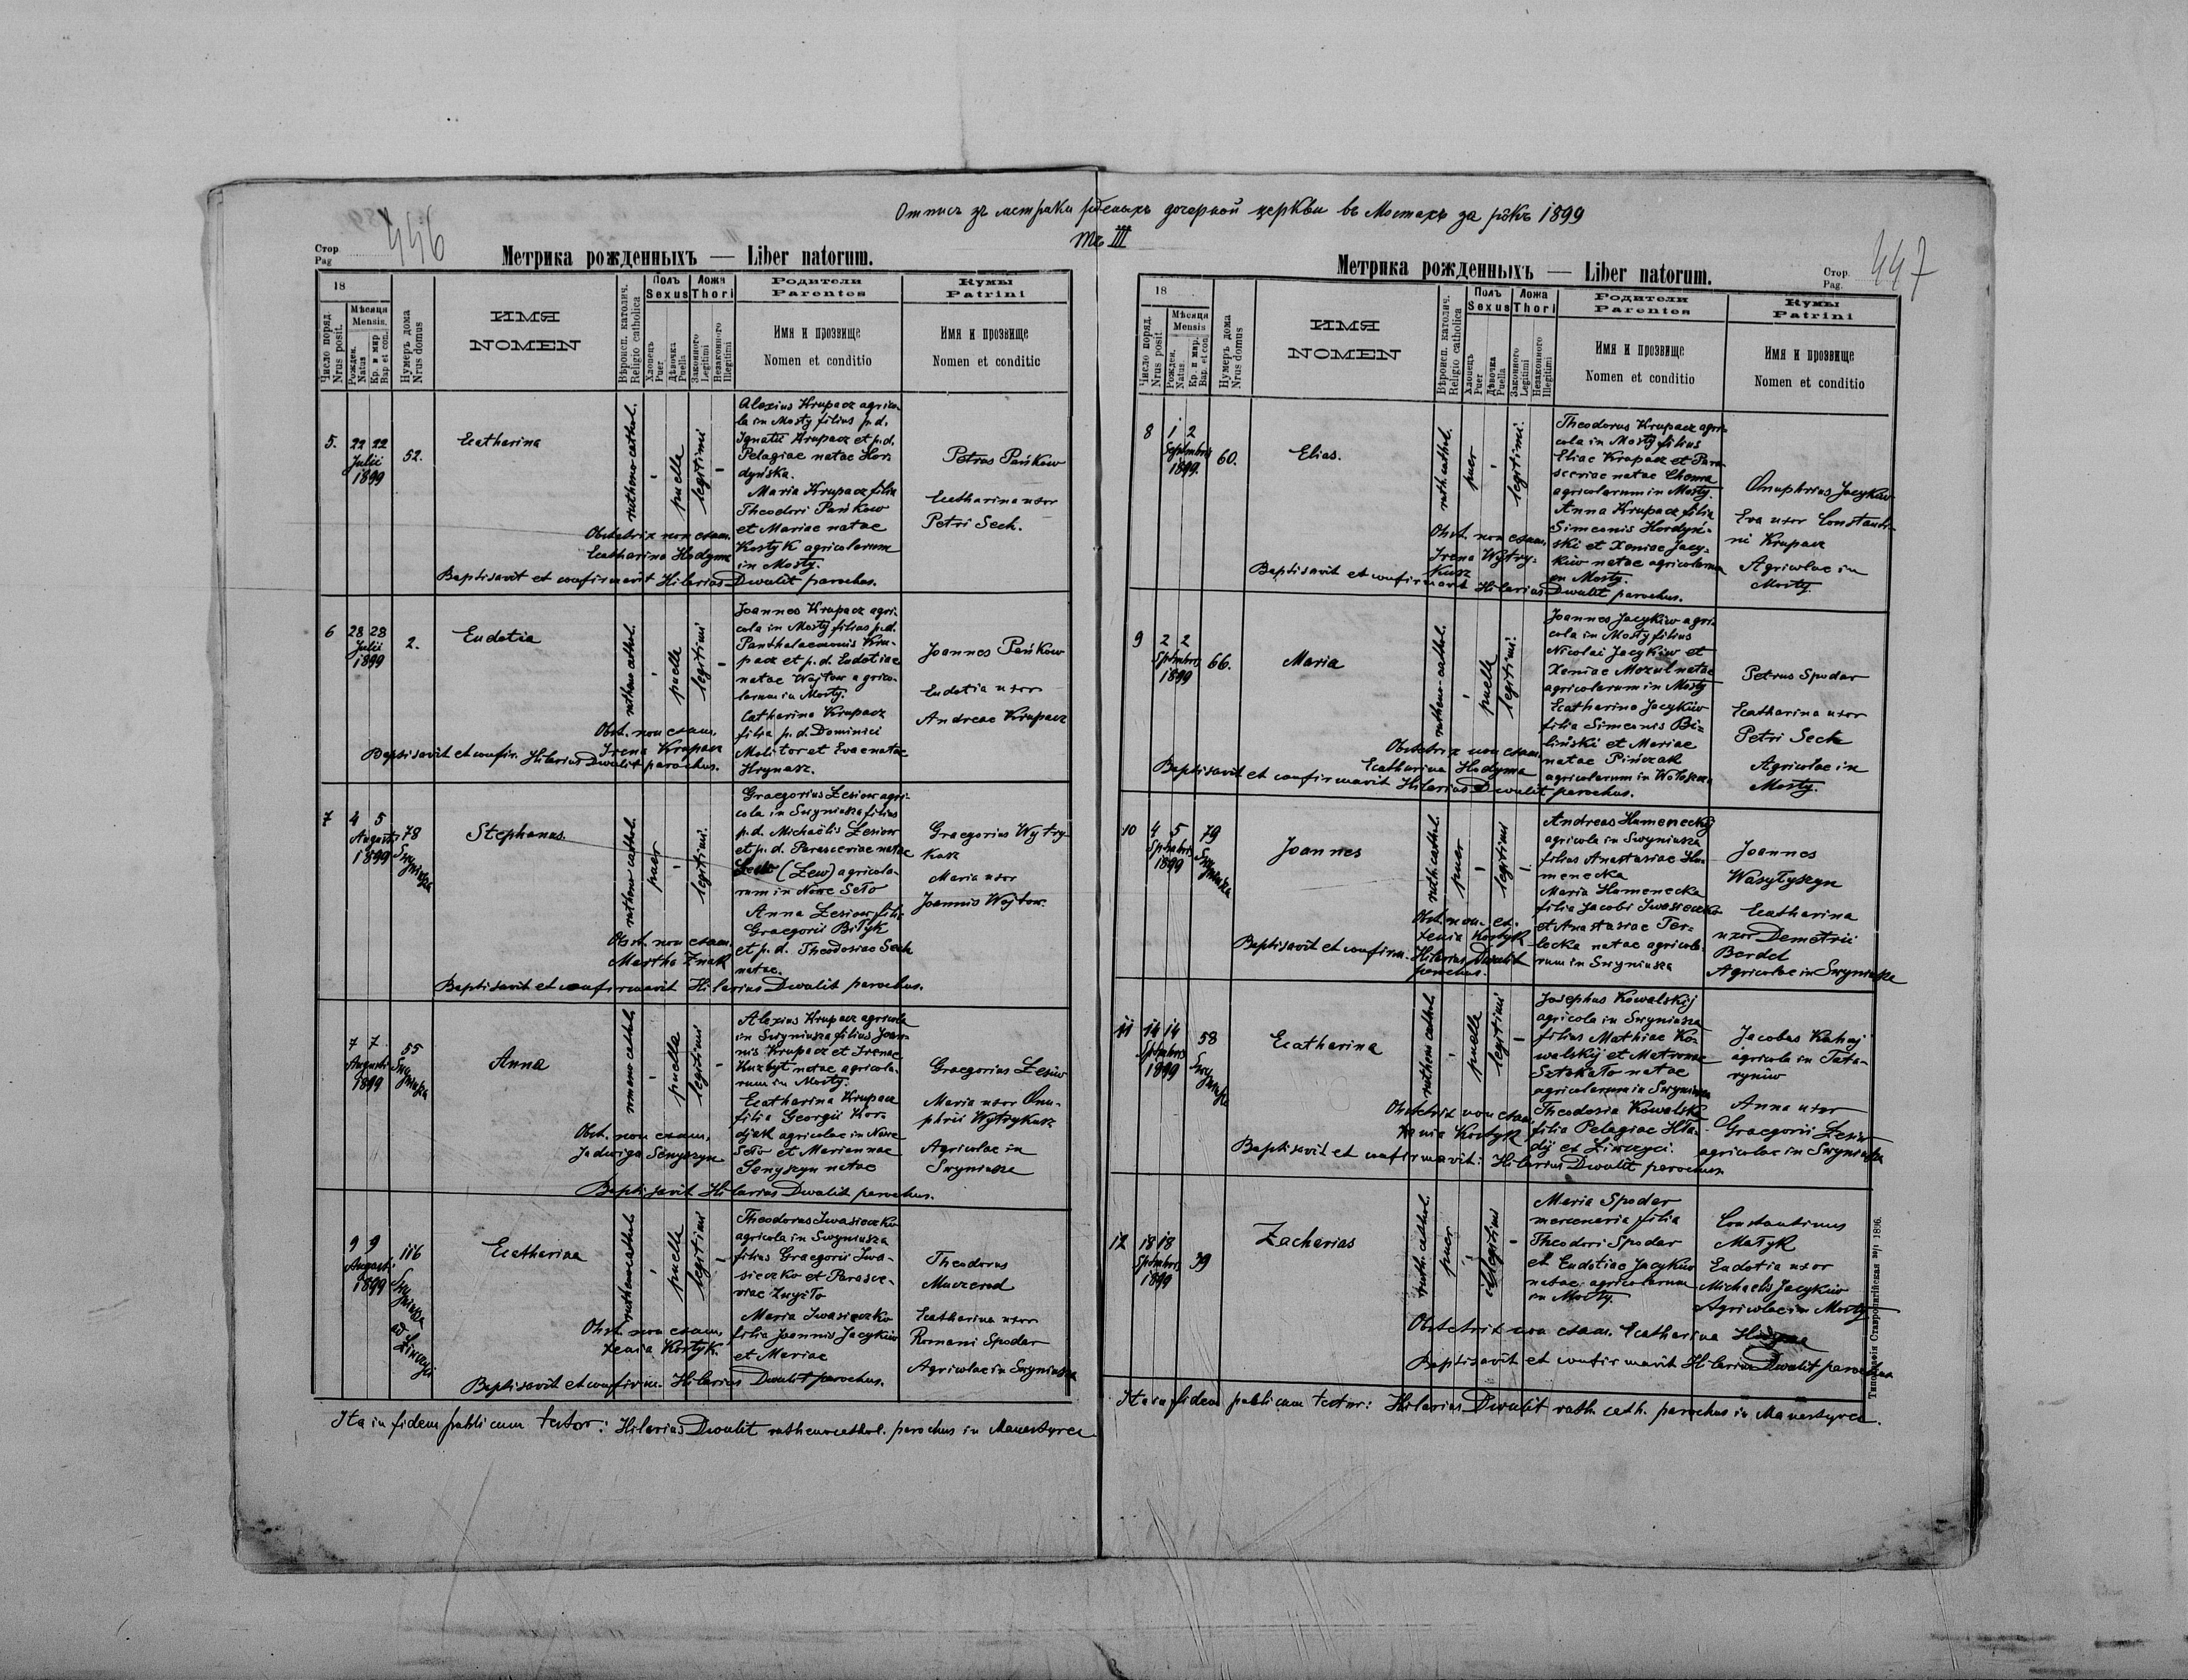 Отпись зъ метрики дочерной церкви въ Мостахъ за рôкъ 1899
III
Стор.
Pag
446
Метрика рожденныхъ — Liber natorum.
18
Число поряд.
Nrus posit.
Мѣсяця
Mensis.
Рожден.
Natus
Кр. и мир
Bap. et con.
Нумеръ дома
Nrus domus
ИМЯ
NOMEN
Вѣроисп. католич.
Religio catholica
Полъ
Sexus
Хлопець
Puer
Дѣвочка
Puella
Ложа
Thori
Законного
Legitimi
Незаконного
Illegitimi
Родители
Parentes
Имя и прозвище
Nomen et conditio
Кумы
Patrini
Имя и прозвище
Nomen et conditio
5.
22 22
Julii
1899
52.
Ecatherina
rutheno cathol.
puella
legitimi
Alexius Krupacz agrico-
la in Mosty filius p.d.
Ignatii Krupacz et p.d.
Pelagiae natae Hor-
dyńska.
Maria Krupacz filia
Theodori Pańkow
et Mariae natae
Kostyk agricolarum
in Mosty.
Petrus Pańkow
Ecatharina uxor
Petri Sech.
Obstetrix non exam.
Ecatharina Hodyma
Baptisavit et confirmavit Hilarius Dwulit parochus.
6
28 28
Julii
1899
2.
Eudotia
rutheno cathol.
puella
legitimi
Joannes Krupacz agri-
cola in Mosty filius p.d.
Panthalaemonis Kru-
pacz et p.d. Eudotiae
natae Wojtow agrico-
larum in Mosty.
Catharina Krupacz
filia p.d. Dominici
Molitor et Evae natae
Hrynasz.
Joannes Pańkow
Eudotia uxor
Andreae Krupacz
Obst. non exam.
Irena Krupacz
Baptisavit et confir. Hilarius Dwulit parochus.
7
4 5
Augusti
1899
78
Swyniusza
Stephanus
rutheno cathol.
puer
legitimi.
Graegorius Lesiow agri-
cola in Swyniusza filius
p.d. Michaëlis Lesiow
et p.d. Parasceviae natae
(Lew) agricola-
rum in Nowe Seło
Anna Lesiow filia
Graegorii Biłyk
et p.d. Theodosiae Sech
natae.
Graegorius Wytry-
kusz
Maria uxor
Joannis Wojtow.
Obst. non exam.
Martha Znak
Baptisavit et confirmavit Hilarius Dwulit parochus.
7 7
Augusti
1899
55
Swyniusza
Anna
romano cathol.
puella
legitimi
Alexius Krupacz agricola
in Swyniusza filius Joan-
nis Krupacz et Irenae
Kuzbyt natae agricola-
rum in Mosty.
Ecatharina Krupacz
filia Georgii Kor-
djak agricolae in Nowe
Seło et Mariannae
Senyszyn natae
Graegorius Lesiów
Maria uxor Onu-
phrii Wytrykusz
Agricolae in
Swyniusza
Obst. non exam.
Jadwiga Senyszyn
Baptisavit Hilarius Dwulit parochus.
9 9
Augusti
1899
116
Swyniusza
ad
Liwczyci
Ecatherina
rutheno cathol.
puella
legitimi
Theodorus Iwasieczko
agricola in Swyniusza
filius Graegorii Iwa-
sieczko et Parasce-
viae
Maria Iwasieczko
filia Joannis Jacyków
et Mariae
Theodorus
Ecatharina uxor
Romani Spodar
Agricolae in Swyniusza
Obst. non exam.
Xenia Kostyk.
Baptisavit et confirm. Hilarius Dwulit parochus.
Ita in fidem publicam testor: Hilarius Dwulit ruthenocathol. parochus in Manastyrec
Метрика рожденныхъ — Liber natorum.
Стор.
Pag.
447
18
Число поряд.
Nrus posit.
Мѣсяця
Mensis
Рожден.
Natus.
Кр. и мир.
Bap. et con.
Нумеръ дома
Nrus domus
ИМЯ
NOMEN
Вѣроисп. католич.
Religio catholica
Полъ
Sexus
Хлопець
Puer
Дѣвочка
Puella
Ложа
Thori
Законного
Legitimi
Незаконного
Illegitimi
Родители
Parentes
Имя и прозвище
Nomen et conditio
Кумы
Patrini
Имя и прозвище
Nomen et conditio
8
1 2
Septembris
1899.
60.
Elias.
ruth. cathol.
puer
legitimi.
Theodorus Krupacz agri-
cola in Mosty filius
Eliae Krupacz et Para-
sceviae natae Choma
agricolarum in Mosty.
Anna Krupacz filia
Simeonis Hordyń-
ski et Xeniae Jacy-
ków natae agricolarum
in Mosty.
Onuphrius Jacyków
Eva uxor Constanti-
ni Krupacz
Agricolae in
Mosty.
Obst. non exam.
Irena Wytry-
kusz
Baptisavit et confirmavit Hilarius Dwulit parochus.
9
2 2
Sptmbris
1899
66.
Maria
rutheno-cathol.
puella
legitimi.
Joannes Jacyków agri-
cola in Mosty filius
Nicolai Jacyków et
Xeniae Mozul natae
agricolarum in Mosty
Ecatharina Jacyków
filia Simeonis Bi-
liński et Mariae
natae Pińczak
agricolarum in Wołoszcza
Petrus Spodar
Ecatharina uxor
Petri Sech
Agricolae in
Mosty.
Obstetrix non exam.
Ecatharina Hodyma
Baptisavit et confirmavit Hilarius Dwulit parochus.
10
4 5
Sptmbris
1899
79
Swyniusza
Joannes
ruth. cathol.
puer
legitimi
Andreas Humeneckij
agricola in Swyniusza
filius Anastasiae Hu-
menecka
Maria Humenecka
filia Jacobi Iwasieczko
et Anastasiae Ter-
lecka natae agricola-
rum in Swyniusza
Joannes
Wasyłyszyn
Ecatharina
uxor Demetrii
Berdel
Agricolae in Swyniusza
Obst. non. ex.
Xenia Kostyk
Baptisavit et confirm. Hilarius Dwulit
parochus.
11
14 14
Sptmbris
1899
58
Swyniusza
Ecatharina
rutheno cathol.
puella
legitimi
Josephus Kowalskij
agricola in Swyniusza
filius Mathiae Ko-
walskij et Matronae
natae
agricolarum in Swyniusza
Theodosia Kowalska
filia Pelagiae Hła-
dij ex Liwczyci.
Jacobus Kahuj
agricola in Tata-
rynów
Anna uxor
Graegorii Lesiów
agricolae in Swyniusza
Obstetrix non exam.
Xenia Kostyk
Baptisavit et confirmavit: Hilarius Dwulit parochus.
12
18 18
Sptmbris
1899
39
Zacharias
ruth. cathol.
puer
illegitimi
Maria Spodar
mercenaria filia
Theodori Spodar
et Eudotiae Jacyków
natae agricolarum
in Mosty.
Constantinus
Małyk
Eudotia uxor
Michaelis Jacyków
Agricolae in Mosty
Obstetrix non exam. Ecatharina Hodyma
Baptisavit et confirmavit Hilarius Dwulit parochus
Ita in fidem publicam testor: Hilarius Dwulit ruth. cath. parochus in Manastyrec.
Типографія Ставропигійская 1896.